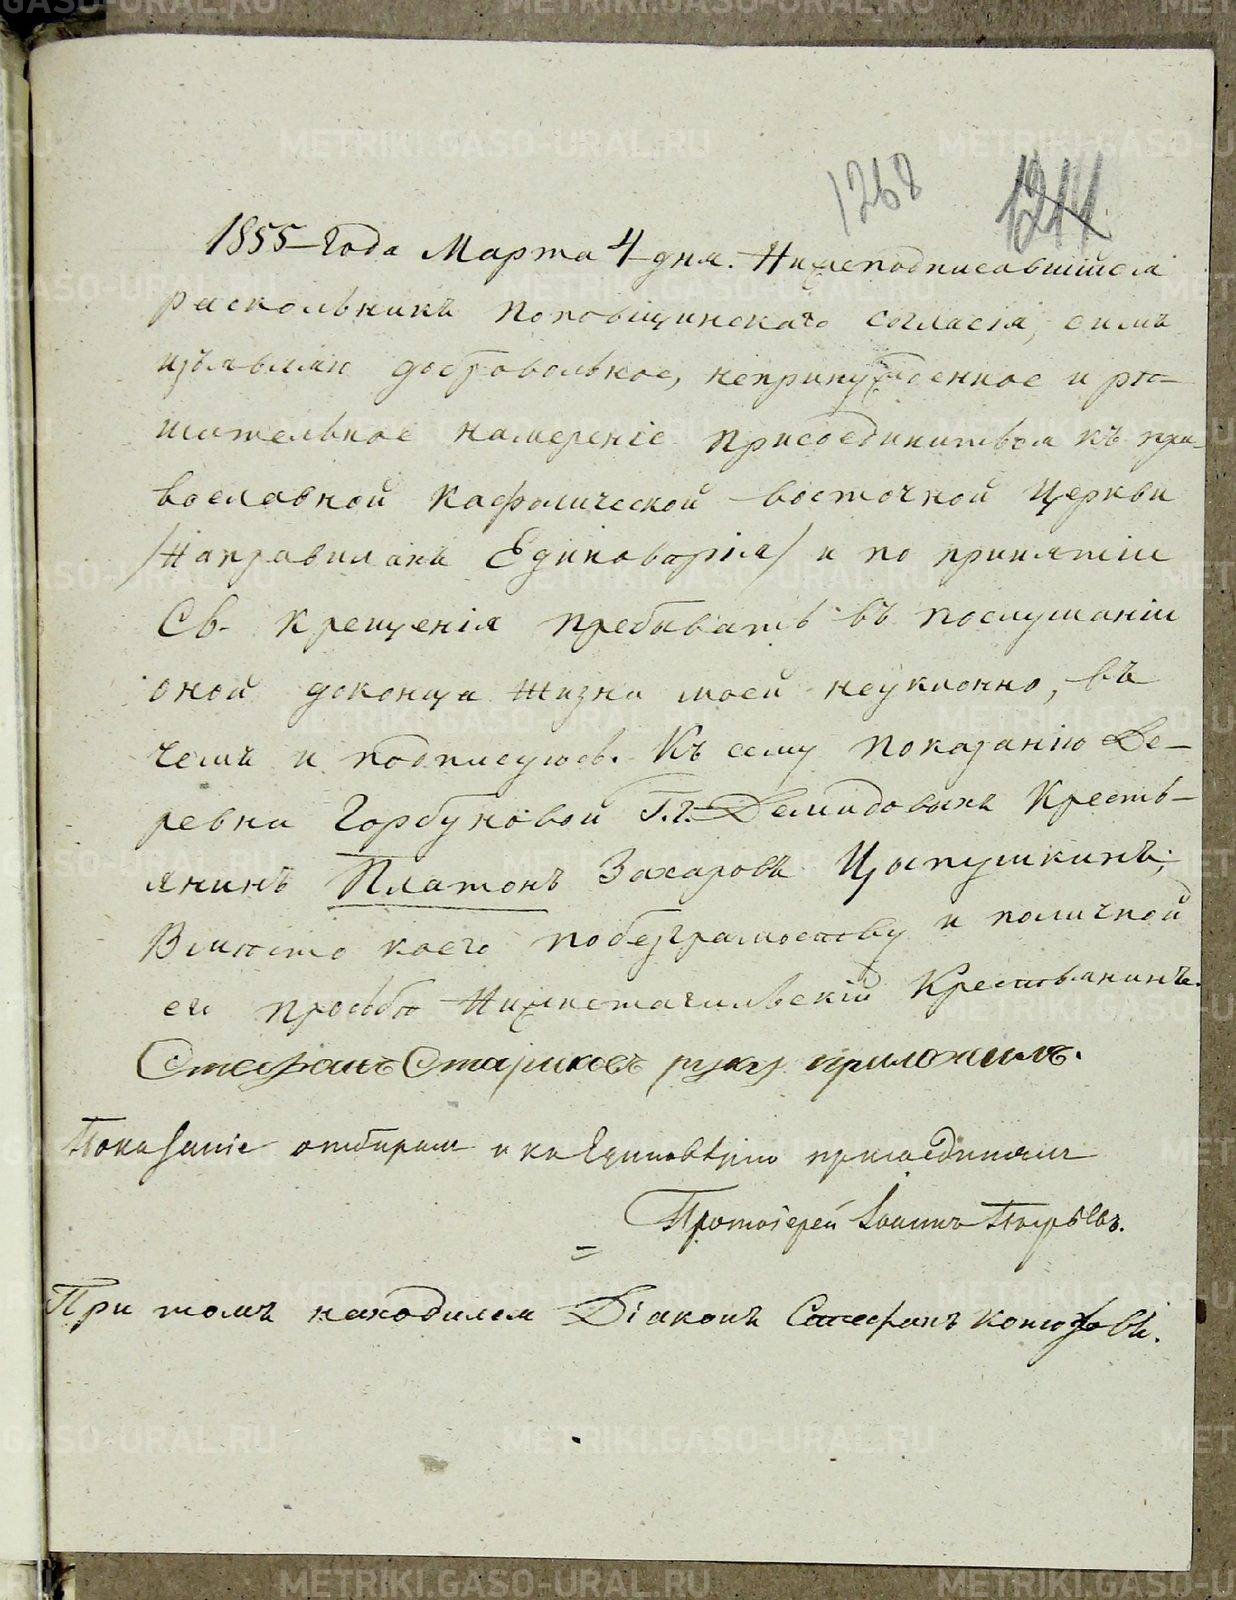 1268 1244
1855 года Марта 4 дня. Нижеподписавшийся
раскольникъ поповщинскаго согласія, симъ
изъявляю добровольное, непринужденное и рѣ-
шительное намереніе присоединиться къ пра-
вославной Кафолической восточной Церкви
/На правилахъ Единоверія/ и по принятіи
Св. крещенія пребывать въ послушаніи
оной доконца жизни моей неуклонно, въ
чемъ и подписуюсь. Къ сему показанію Де-
ревни Горбуновой Г.г. Демидовыхъ Кресть-
янинъ Платонъ Захаровъ Цыпушкинъ;
Вместо коего побезграмотству и поличной
его просьбѣ Нижнетагильскій Крестьянинъ
Стефанъ Стариковъ руку приложилъ.
Показаніе отбиралъ и къ Единовѣрію присоединялъ
Протоіерей Іоаннъ
При томъ находился Діаконъ Стефанъ Конюховъ.
METRIKI.GASO-URAL.RU